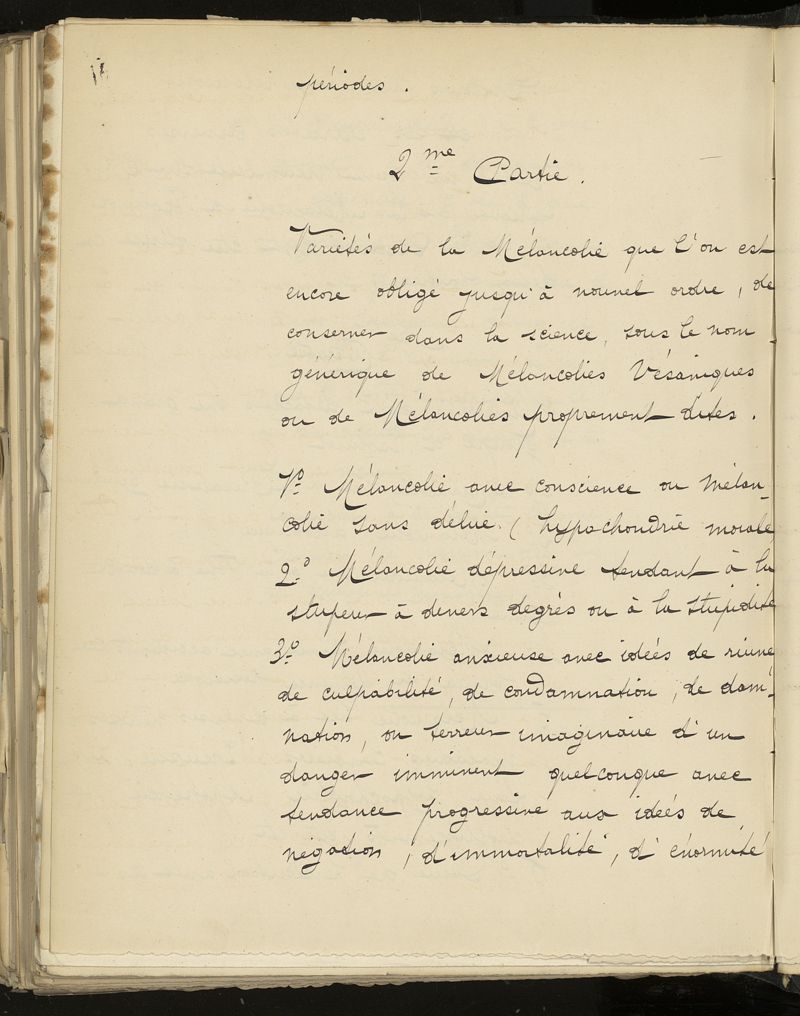 périodes.
2me Partie.
Variétés de la Mélancolie que l'on est
encore obligé jusqu'à nouvel ordre, de
conserver dans la science, sous le nom
générique de Mélancolies Vésaniques
ou de Mélancolies proprement dites.
1o Mélancolie avec conscience ou mélan-
colie sans délire. (hypochondrie morale
2o Mélancolie dépressive tendant à la
stupeur à divers degrés ou à la stupidité
3o Mélancolie anxieuse avec idées de ruine
de culpabilité, de condamnation, de dam-
nation, ou terreur imaginaire d'un
danger imminent quelconque avec
tendance progressive aux idées de
négation, d'immortalité, d'énormité